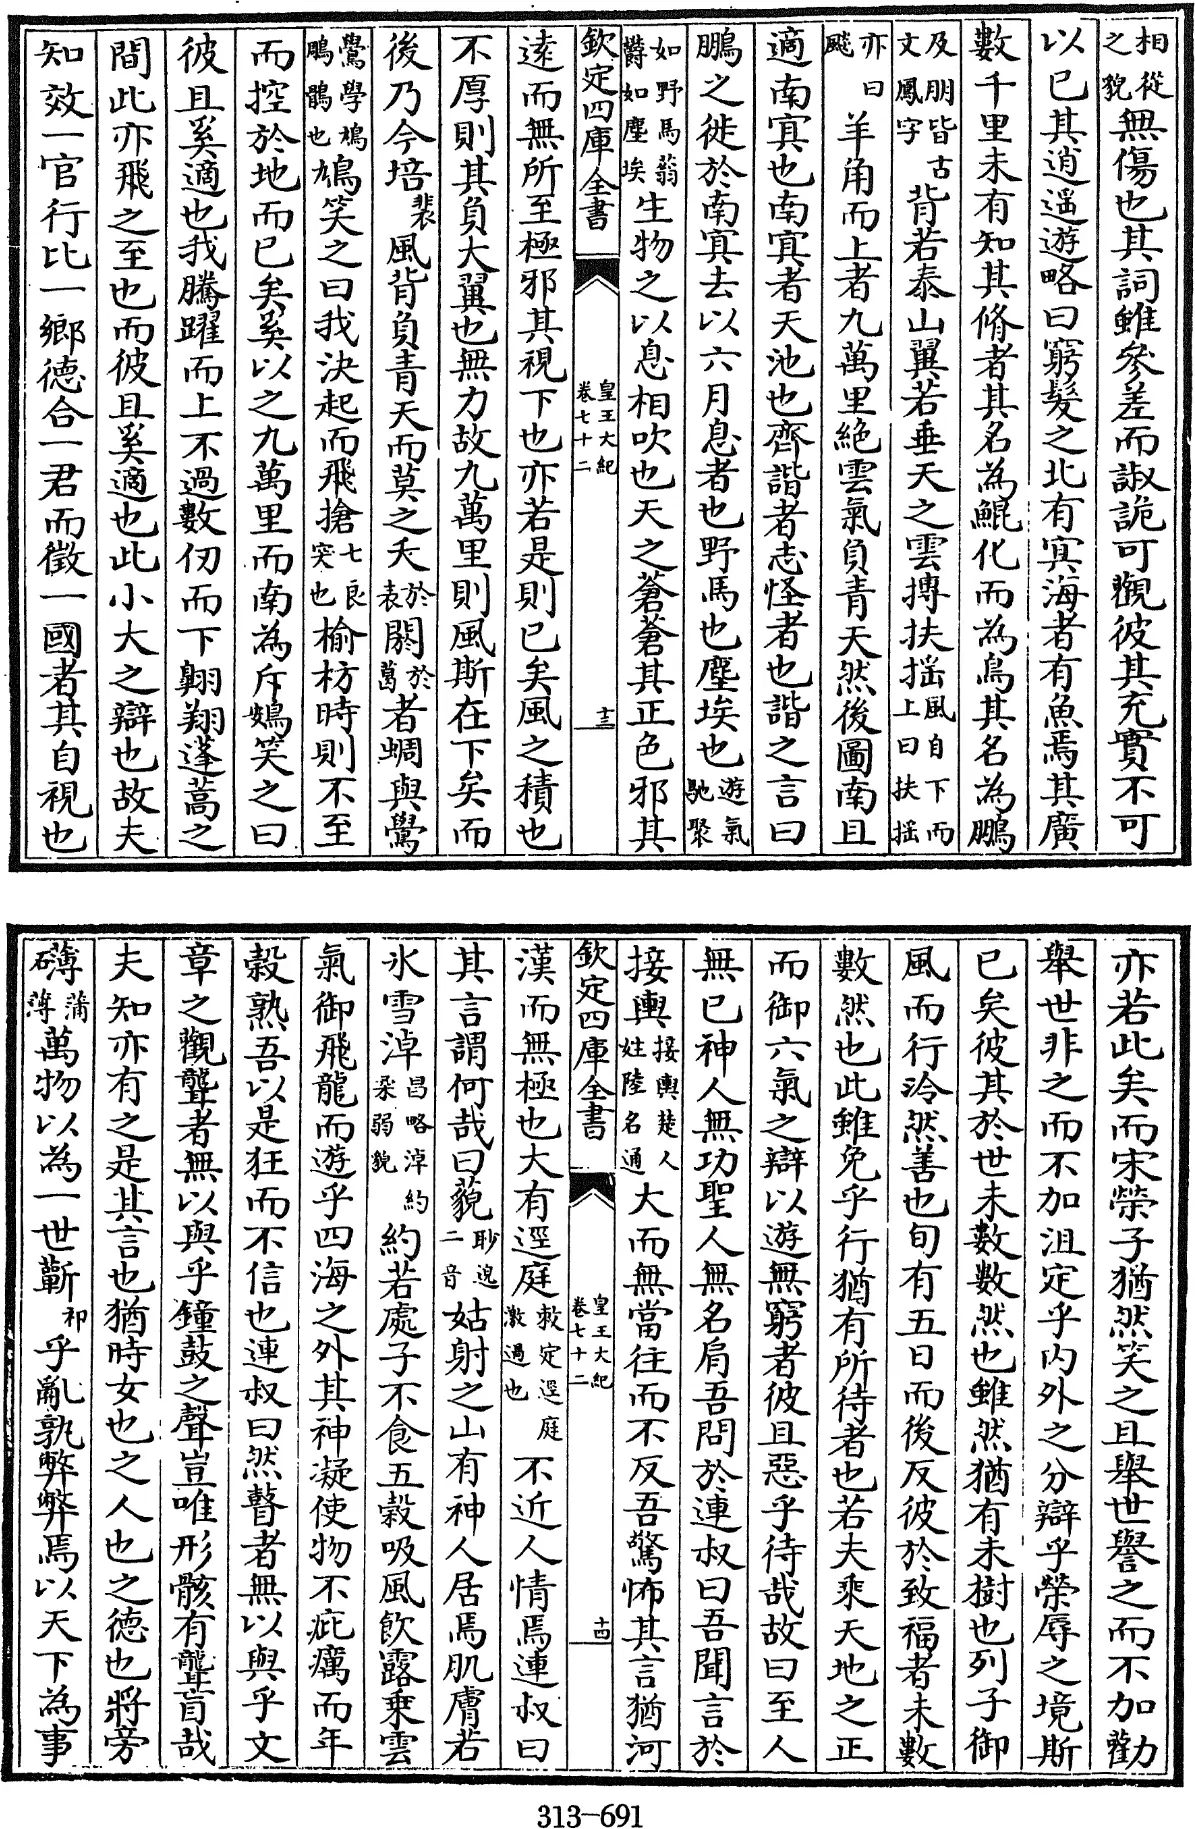 相從之貌無傷也其詞雖參差而諔詭可觀彼其充實不可
以已其逍遥遊略曰窮髮之北有㝠海者有魚焉其廣
數千里未有知其脩者其名為鯤化而為鳥其名為鵬
及朋皆古文鳳字背若泰山翼若垂天之雲摶扶揺風自下而上曰扶揺
亦曰飈羊角而上者九萬里絶雲氣負青天然後圖南且
適南㝠也南㝠者天池也齊諧者志怪者也諧之言曰
鵬之徙於南㝠去以六月息者也野馬也塵埃也遊氣馳聚
如野馬蓊欝如塵埃生物之以息相吹也天之蒼蒼其正色邪其
欽定四庫全書
皇王大紀
卷七十二
十三
逺而無所至極邪其視下也亦若是則已矣風之積也
不厚則其負大翼也無力故九萬里則風斯在下矣而
後乃今培裴風背負青天而莫之夭於表閼於葛者蜩與鷽
鷽學鳩鵰鶻也鳩笑之曰我決起而飛搶七良突也榆枋時則不至
而控於地而已矣奚以之九萬里而南為斥鴳笑之曰
彼且奚適也我騰躍而上不過數仞而下翺翔蓬蒿之
間此亦飛之至也而彼且奚適也此小大之辯也故夫
知效一官行比一鄉徳合一君而徵一國者其自視也
亦若此矣而宋榮子猶然笑之且舉世譽之而不加勸
舉世非之而不加沮定乎内外之分辯乎榮辱之境斯
已矣彼其於世未數數然也雖然猶有未樹也列子御
風而行泠然善也旬有五日而後反彼於致福者未數
數然也此雖免乎行猶有所待者也若夫乘天地之正
而御六氣之辯以遊無窮者彼且惡乎待哉故曰至人
無已神人無功聖人無名肩吾問於連叔曰吾聞言於
接輿接輿楚人姓陸名通大而無當往而不反吾驚怖其言猶河
欽定四庫全書
皇王大紀
卷七十二
十四
漢而無極也大有逕庭敕定逕庭激過也不近人情焉連叔曰
其言謂何哉曰藐眇邈二音姑射之山有神人居焉肌膚若
氷雪淖昌略淖約柔弱貌約若處子不食五榖吸風飲露乗雲
氣御飛龍而遊乎四海之外其神凝使物不疵癘而年
榖熟吾以是狂而不信也連叔曰然瞽者無以與乎文
章之觀聾者無以與乎鐘鼓之聲豈唯形骸有聾盲哉
夫知亦有之是其言也猶時女也之人也之徳也將旁
礴蒲薄萬物以為一世蘄祁乎亂孰弊弊焉以天下為事
313-691